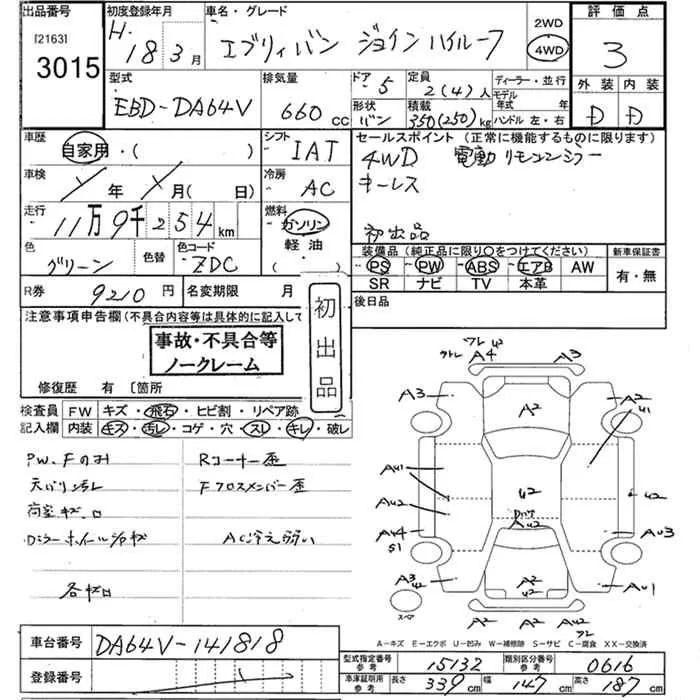 出品番号 初度登録年月 車名・グレード 2WD 評価点
[2163] H. 18 3月 エブリィバン ジョインハイルーフ 4WD 3
3015
型式 排気量 ドア 5 定員 2(4)人 ディーラー・並行 外装 内装
EBD-DA64V 660 cc 形状 バン 積載 350(250)kg モデル年式 年 ハンドル 左・右 D D
車歴 自家用・( ) シフト IAT セールスポイント(正常に機能するものに限ります)
4WD 電動リモコンミラー
車検 年 月(日) 冷房 AC キーレス
走行 11万9千254km 燃料 ガソリン 軽油 ( ) 初出品
色 グリーン 色替 色コード ZDC 装備品(純正品に限り○をつけてください) 新車保証書
PS PW ABS エアB AW 有・無
SR ナビ TV 本革
R券 9210円 名変期限 月 後日品
注意事項申告欄(不具合内容等は具体的に記入して 初出品
事故・不具合等
ノークレーム
修復歴 有 〔箇所
検査員 FW キズ・飛石・ヒビ割・リペア跡
記入欄 内装 キズ・汚レ・コゲ・穴・スレ・キレ・破レ
PW、Fのみ Rコーナー歪
天バリ汚レ Fクロスメンバー歪
荷室キズ、凹
Dミラーホイールカバーキズ AC冷え弱い
各キズ凹
ワレ U2
A4 A3
A3 A2 A2
U1
AU1 U2 U2
AU2 AU2
AU4 AU3
S1
A3 U2 A2 U2 AU1
スペア
A2 A2 AU2
A-キズ E-エクボ U-凹み W-補修跡 S-サビ C-腐食 XX-交換済
車台番号 DA64V-141818
登録番号
型式指定番号 参考 15132 類別区分番号 参考 0616
車庫証明用 参考 長さ 339cm 幅 147cm 高さ 187cm